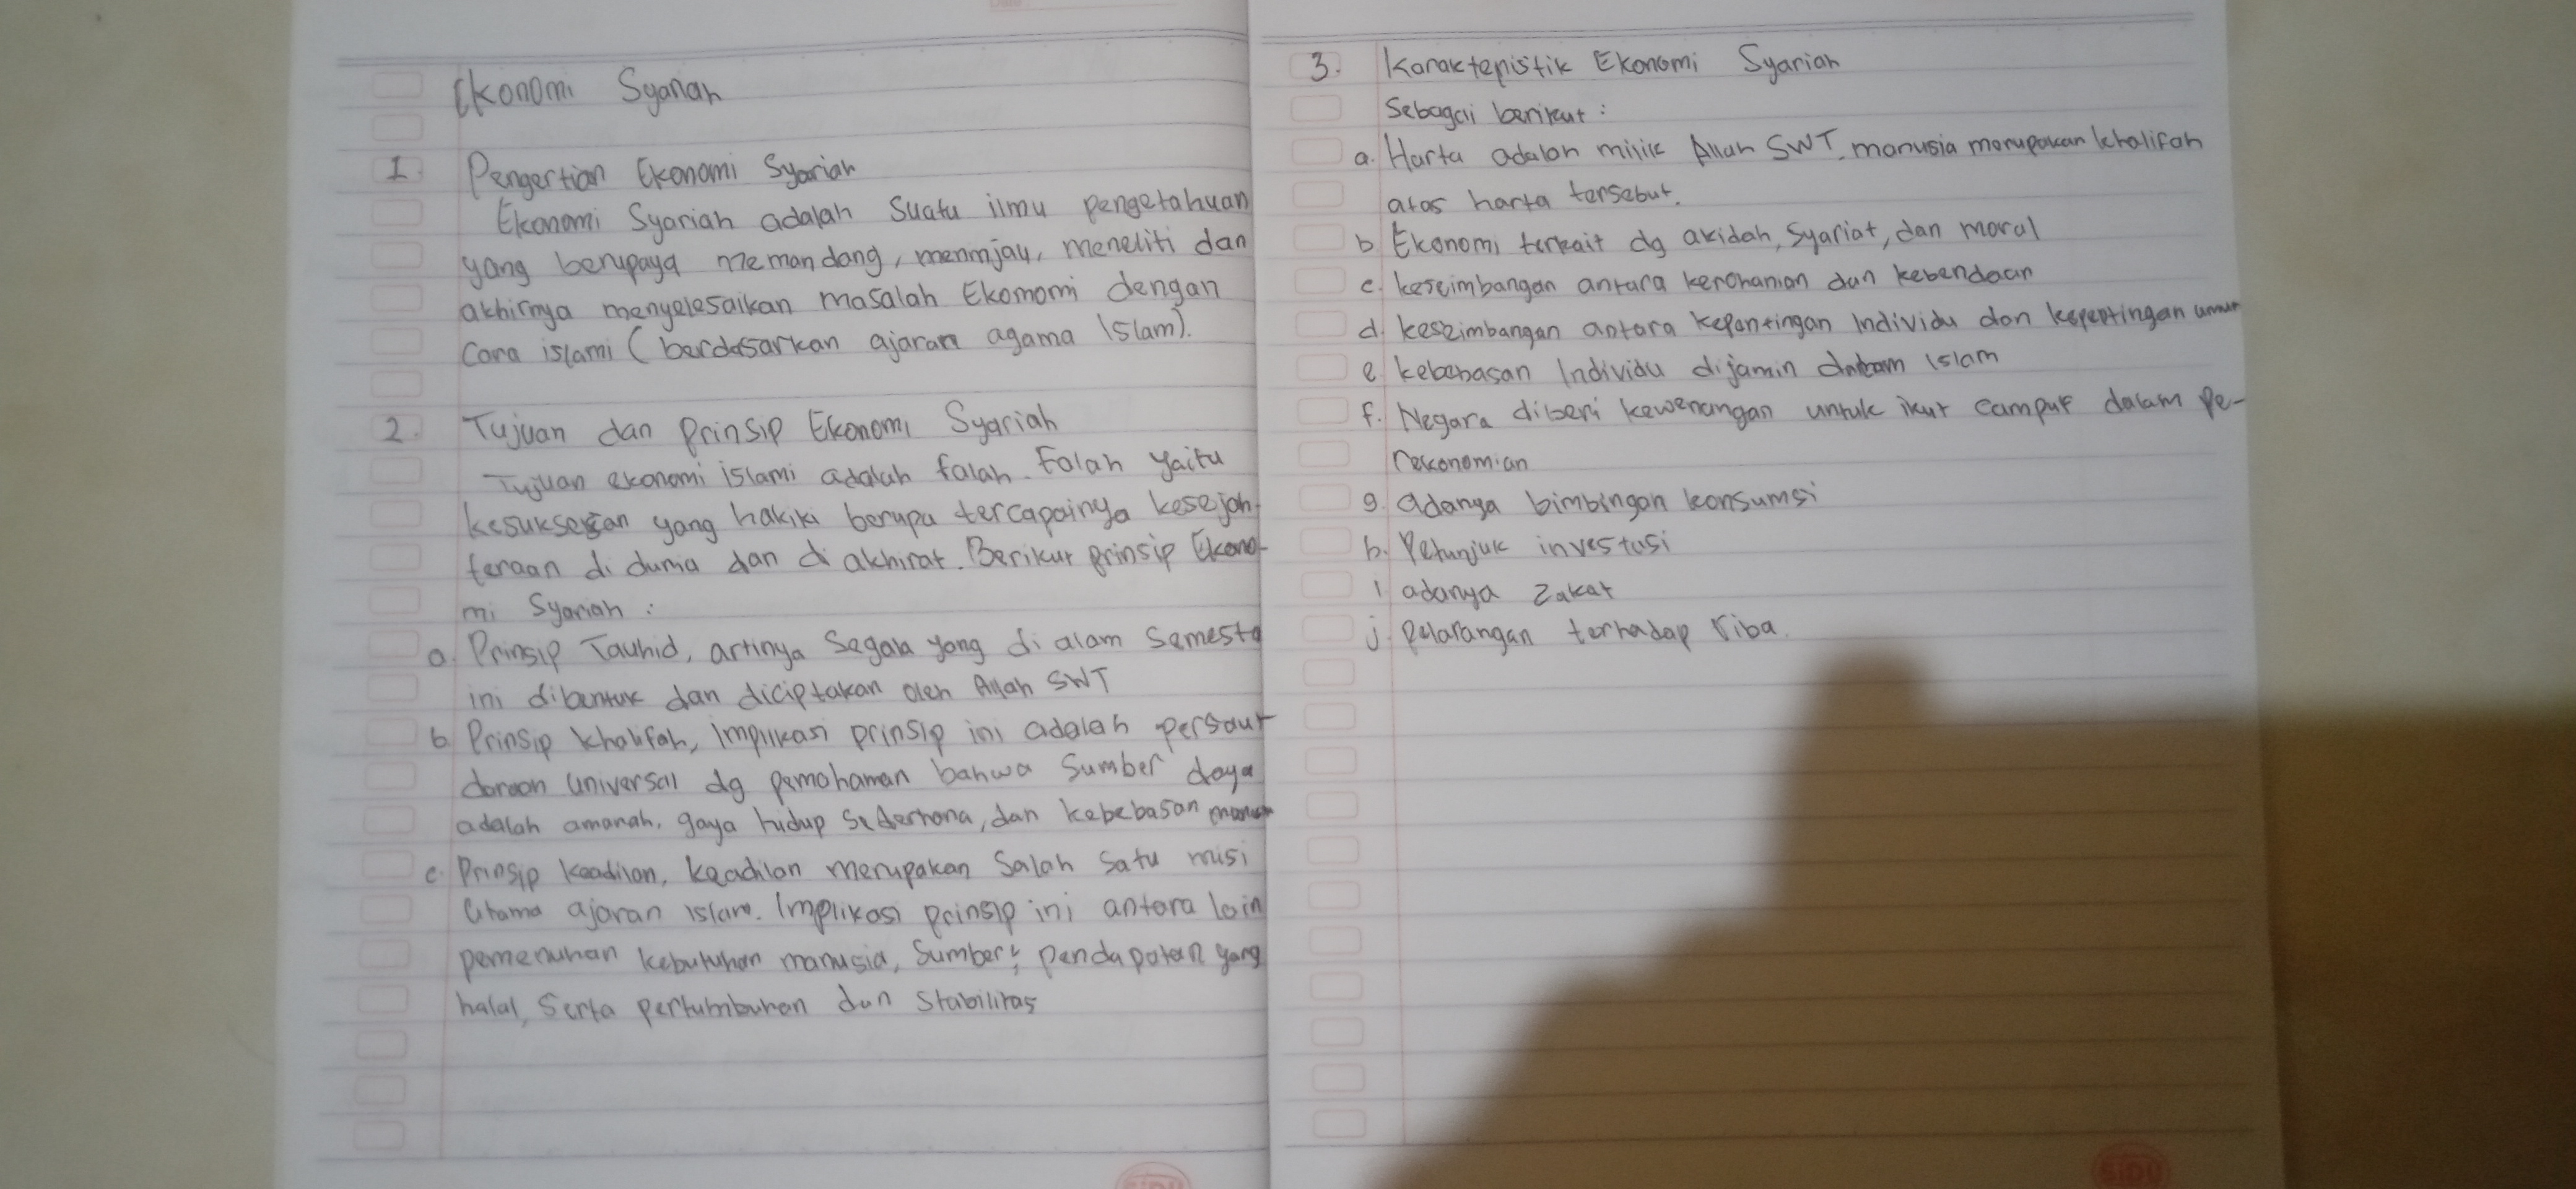 Ekonomi Syariah
1. Pengertian Ekonomi Syariah
Ekonomi Syariah adalah suatu ilmu pengetahuan
yang berupaya memandang, meninjau, meneliti dan
akhirnya menyelesaikan masalah Ekonomi dengan
Cara islami (berdasarkan ajaran agama Islam).
2. Tujuan dan Prinsip Ekonomi Syariah
Tujuan ekonomi islami adalah falah. Falah yaitu
kesuksesan yang hakiki berupa tercapainya kesejah-
teraan di dunia dan di akhirat. Berikut prinsip Ekono-
mi Syariah :
a. Prinsip Tauhid, artinya Segala yang di alam Semesta
ini dibentuk dan diciptakan oleh Allah SWT
b. Prinsip khalifah, Implikasi prinsip ini adalah persau-
daraan universal dg pemahaman bahwa Sumber daya
adalah amanah, gaya hidup Sederhana, dan kebebasan
c. Prinsip keadilan, keadilan merupakan Salah Satu misi
Utama ajaran Islam. Implikasi prinsip ini antara lain
pemenuhan kebutuhan manusia, Sumber² pendapatan yang
halal, Serta pertumbuhan dan Stabilitas
3. Karakteristik Ekonomi Syariah
Sebagai berikut :
a. Harta adalah milik Allah SWT, manusia merupakan khalifah
atas harta tersebut.
b. Ekonomi terkait dg akidah, Syariat, dan moral
c. keseimbangan antara kerohanian dan kebendaan
d. keseimbangan antara kepentingan Individu dan kepentingan umum
e. kebebasan Individu dijamin dalam Islam
f. Negara diberi kewenangan untuk ikut campur dalam pe-
rekonomian
g. adanya bimbingan konsumsi
h. Petunjuk investasi
i adanya Zakat
j. Pelarangan terhadap riba.
SIDU
SIDU